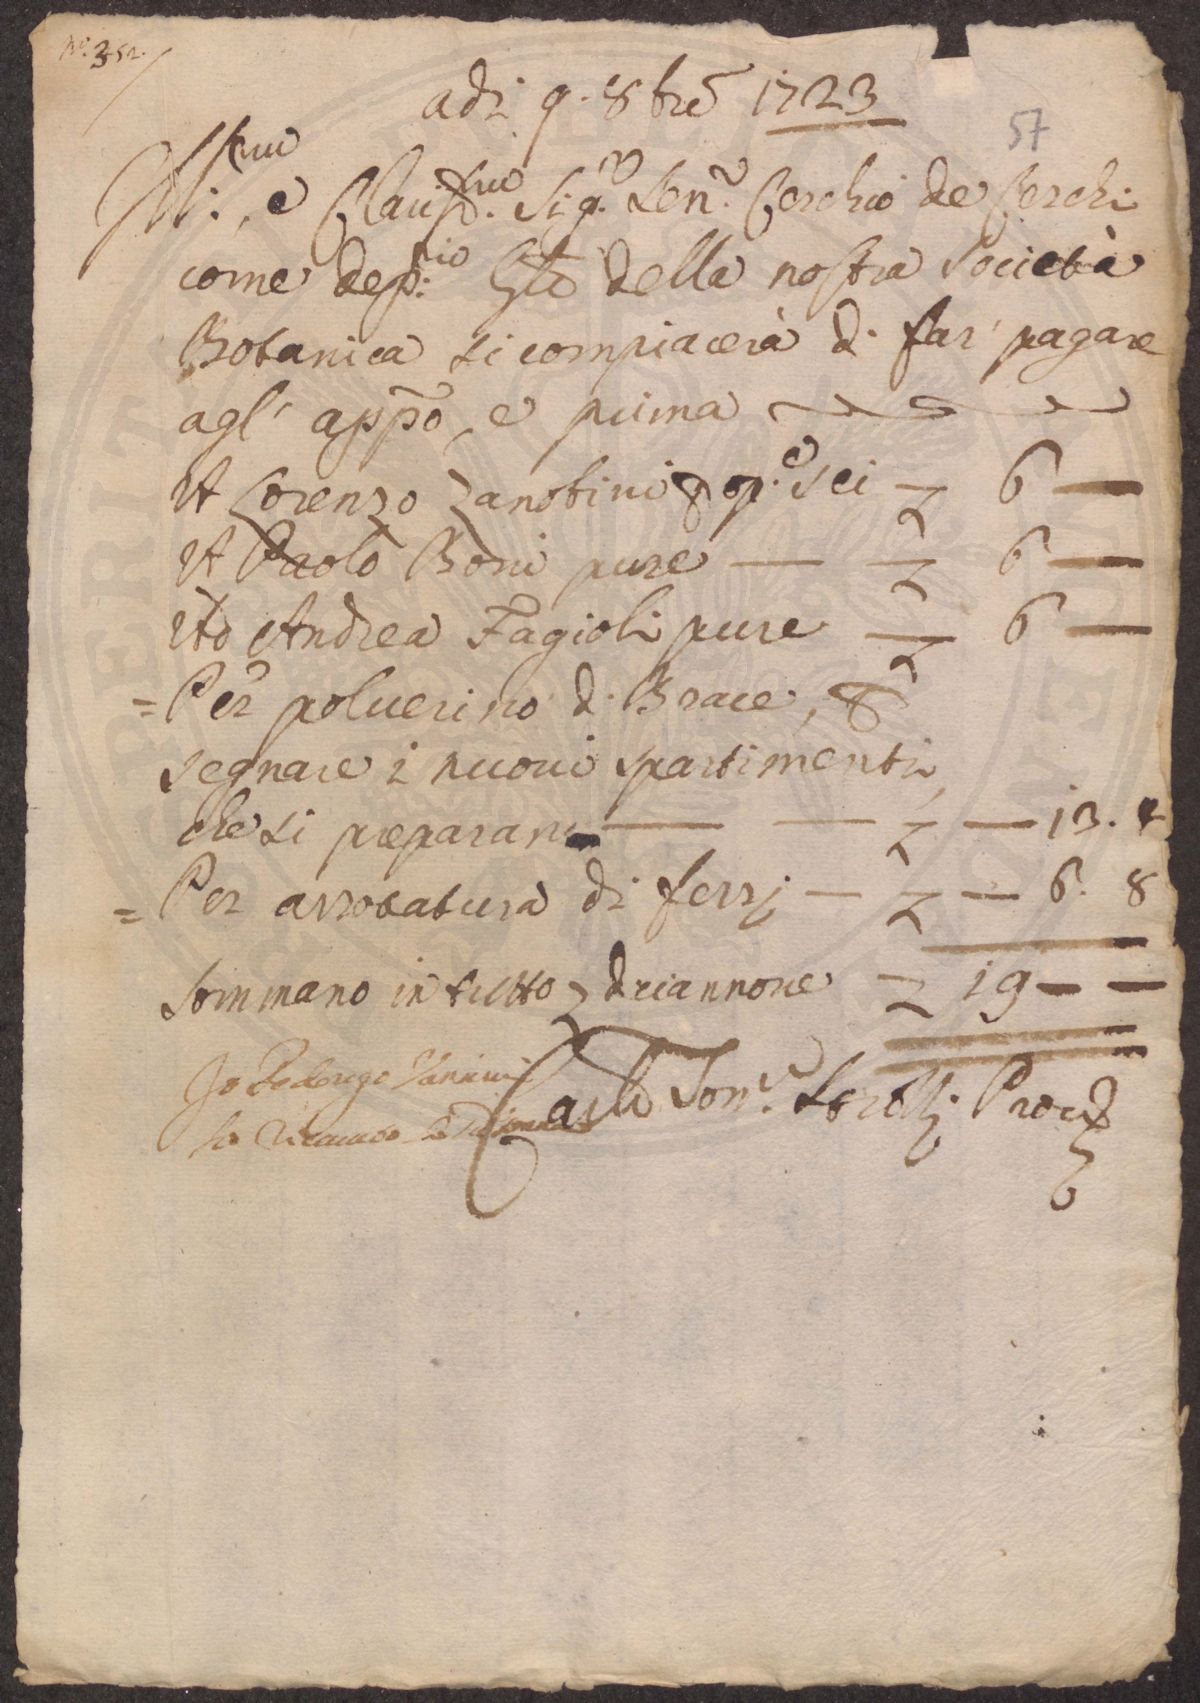 N.º 352
adi 9. 8bre 1723
57
Ill:mo, e Clariss.mo Sig.r Sen.r Cerchio de Cerchi
come dep:rio della nostra società
Botanica si compiacerà di far' pagare
agl' app.o, e prima
A Lorenzo Zanobini p op.e sei — £ 6 —
A Paolo Boni pure — £ 6 —
Ad Andrea Fagioli pure — £ 6 —
= Per poluerino di Brace, p
segnare i nuoui spartimenti,
che si preparano — £ — 13. 4
= Per arrotatura di ferri — £ — 6. 8
Sommano in tutto £ diciannoue £ 19 — —
Io Federigo
Carlo Tom.o Proc.e
Io